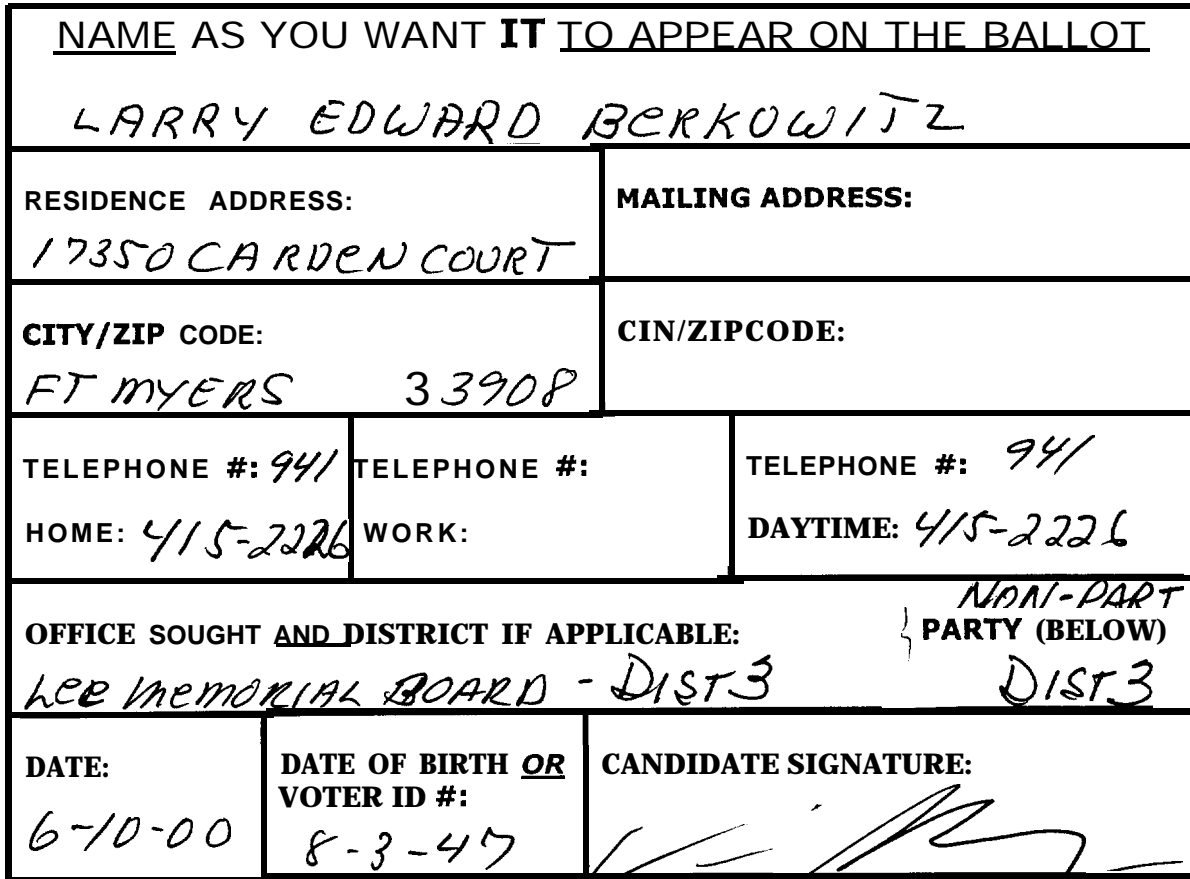 NAME AS YOU WANT IT TO APPEAR ON THE BALLOT
LARRY EDWARD BERKOWITZ
RESIDENCE ADDRESS:
17350 CARDEN COURT
MAILING ADDRESS:
CITY/ZIP CODE:
FT MYERS 33908
CIN/ZIPCODE:
TELEPHONE #: 941
HOME: 415-2226
TELEPHONE #:
WORK:
TELEPHONE #: 941
DAYTIME: 415-2226
OFFICE SOUGHT AND DISTRICT IF APPLICABLE:
LEE MEMORIAL BOARD - DIST 3
NON-PART
PARTY (BELOW)
DIST 3
DATE:
6-10-00
DATE OF BIRTH OR
VOTER ID #:
8-3-47
CANDIDATE SIGNATURE: